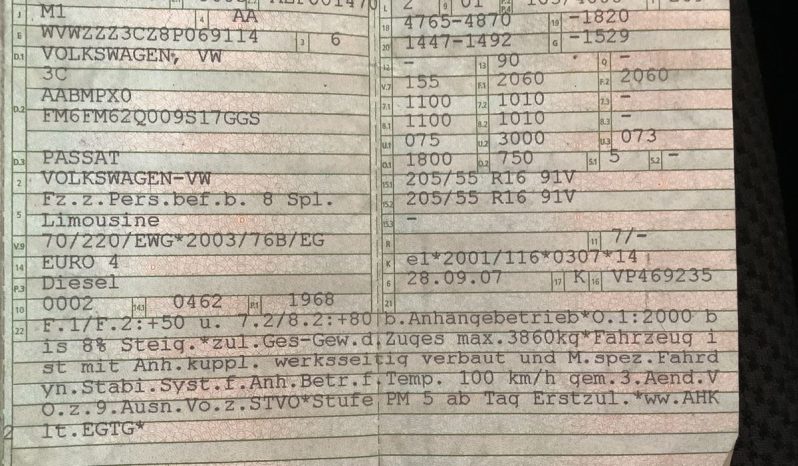 J M1 4 AA L 2 9 01
18 4765-4870 19 -1820
E WVWZZZ3CZ8P069114 3 6 20 1447-1492 G -1529
D.1 VOLKSWAGEN, VW 12 - 13 90 Q -
3C V.7 155 F.1 2060 F.2 2060
D.2 AABMPX0 7.1 1100 7.2 1010 7.3 -
FM6FM62Q009S17GGS 8.1 1100 8.2 1010 8.3 -
U.1 075 U.2 3000 U.3 073
D.3 PASSAT O.1 1800 O.2 750 S.1 5 S.2 -
2 VOLKSWAGEN-VW 15.1 205/55 R16 91V
5 Fz.z.Pers.bef.b. 8 Spl. 15.2 205/55 R16 91V
Limousine 15.3 -
V.9 70/220/EWG*2003/76B/EG R 11 7/-
14 EURO 4 K e1*2001/116*0307*14
P.3 Diesel 6 28.09.07 17 K 16 VP469235
10 0002 14.1 0462 P.1 1968 21
22 F.1/F.2:+50 u. 7.2/8.2:+80 b.Anhängebetrieb*O.1:2000 b
is 8% Steig.*zul.Ges-Gew.d.Zuges max.3860kg*Fahrzeug i
st mit Anh.kuppl. werksseitig verbaut und M.spez.Fahrd
yn.Stabi.Syst.f.Anh.Betr.f.Temp. 100 km/h gem.3.Aend.V
O.z.9.Ausn.Vo.z.STVO*Stufe PM 5 ab Tag Erstzul.*ww.AHK
lt.EGTG*